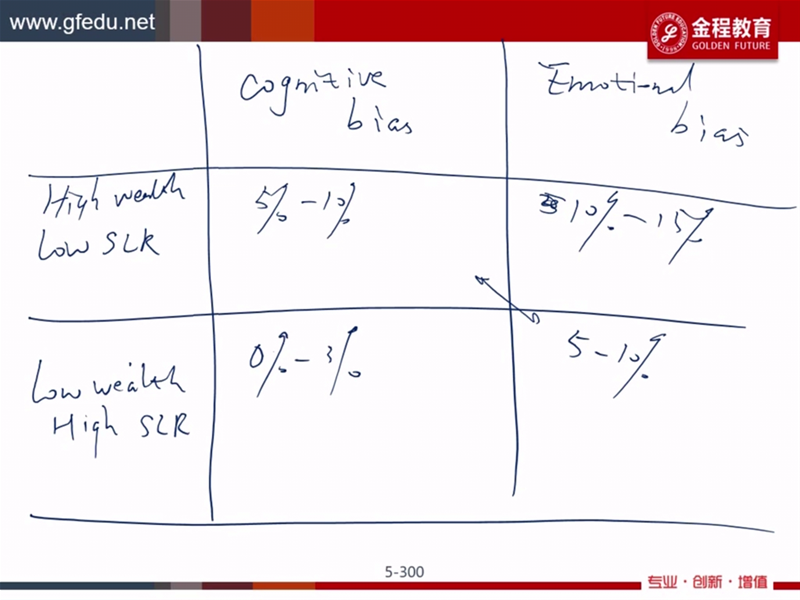 www.gfedu.net
金程教育
GOLDEN FUTURE
Cognitive bias
Emotional bias
High wealth
Low SLR
5% - 10%
10% - 15%
Low wealth
High SLR
0% - 3%
5 - 10%
5-300
专业·创新·增值